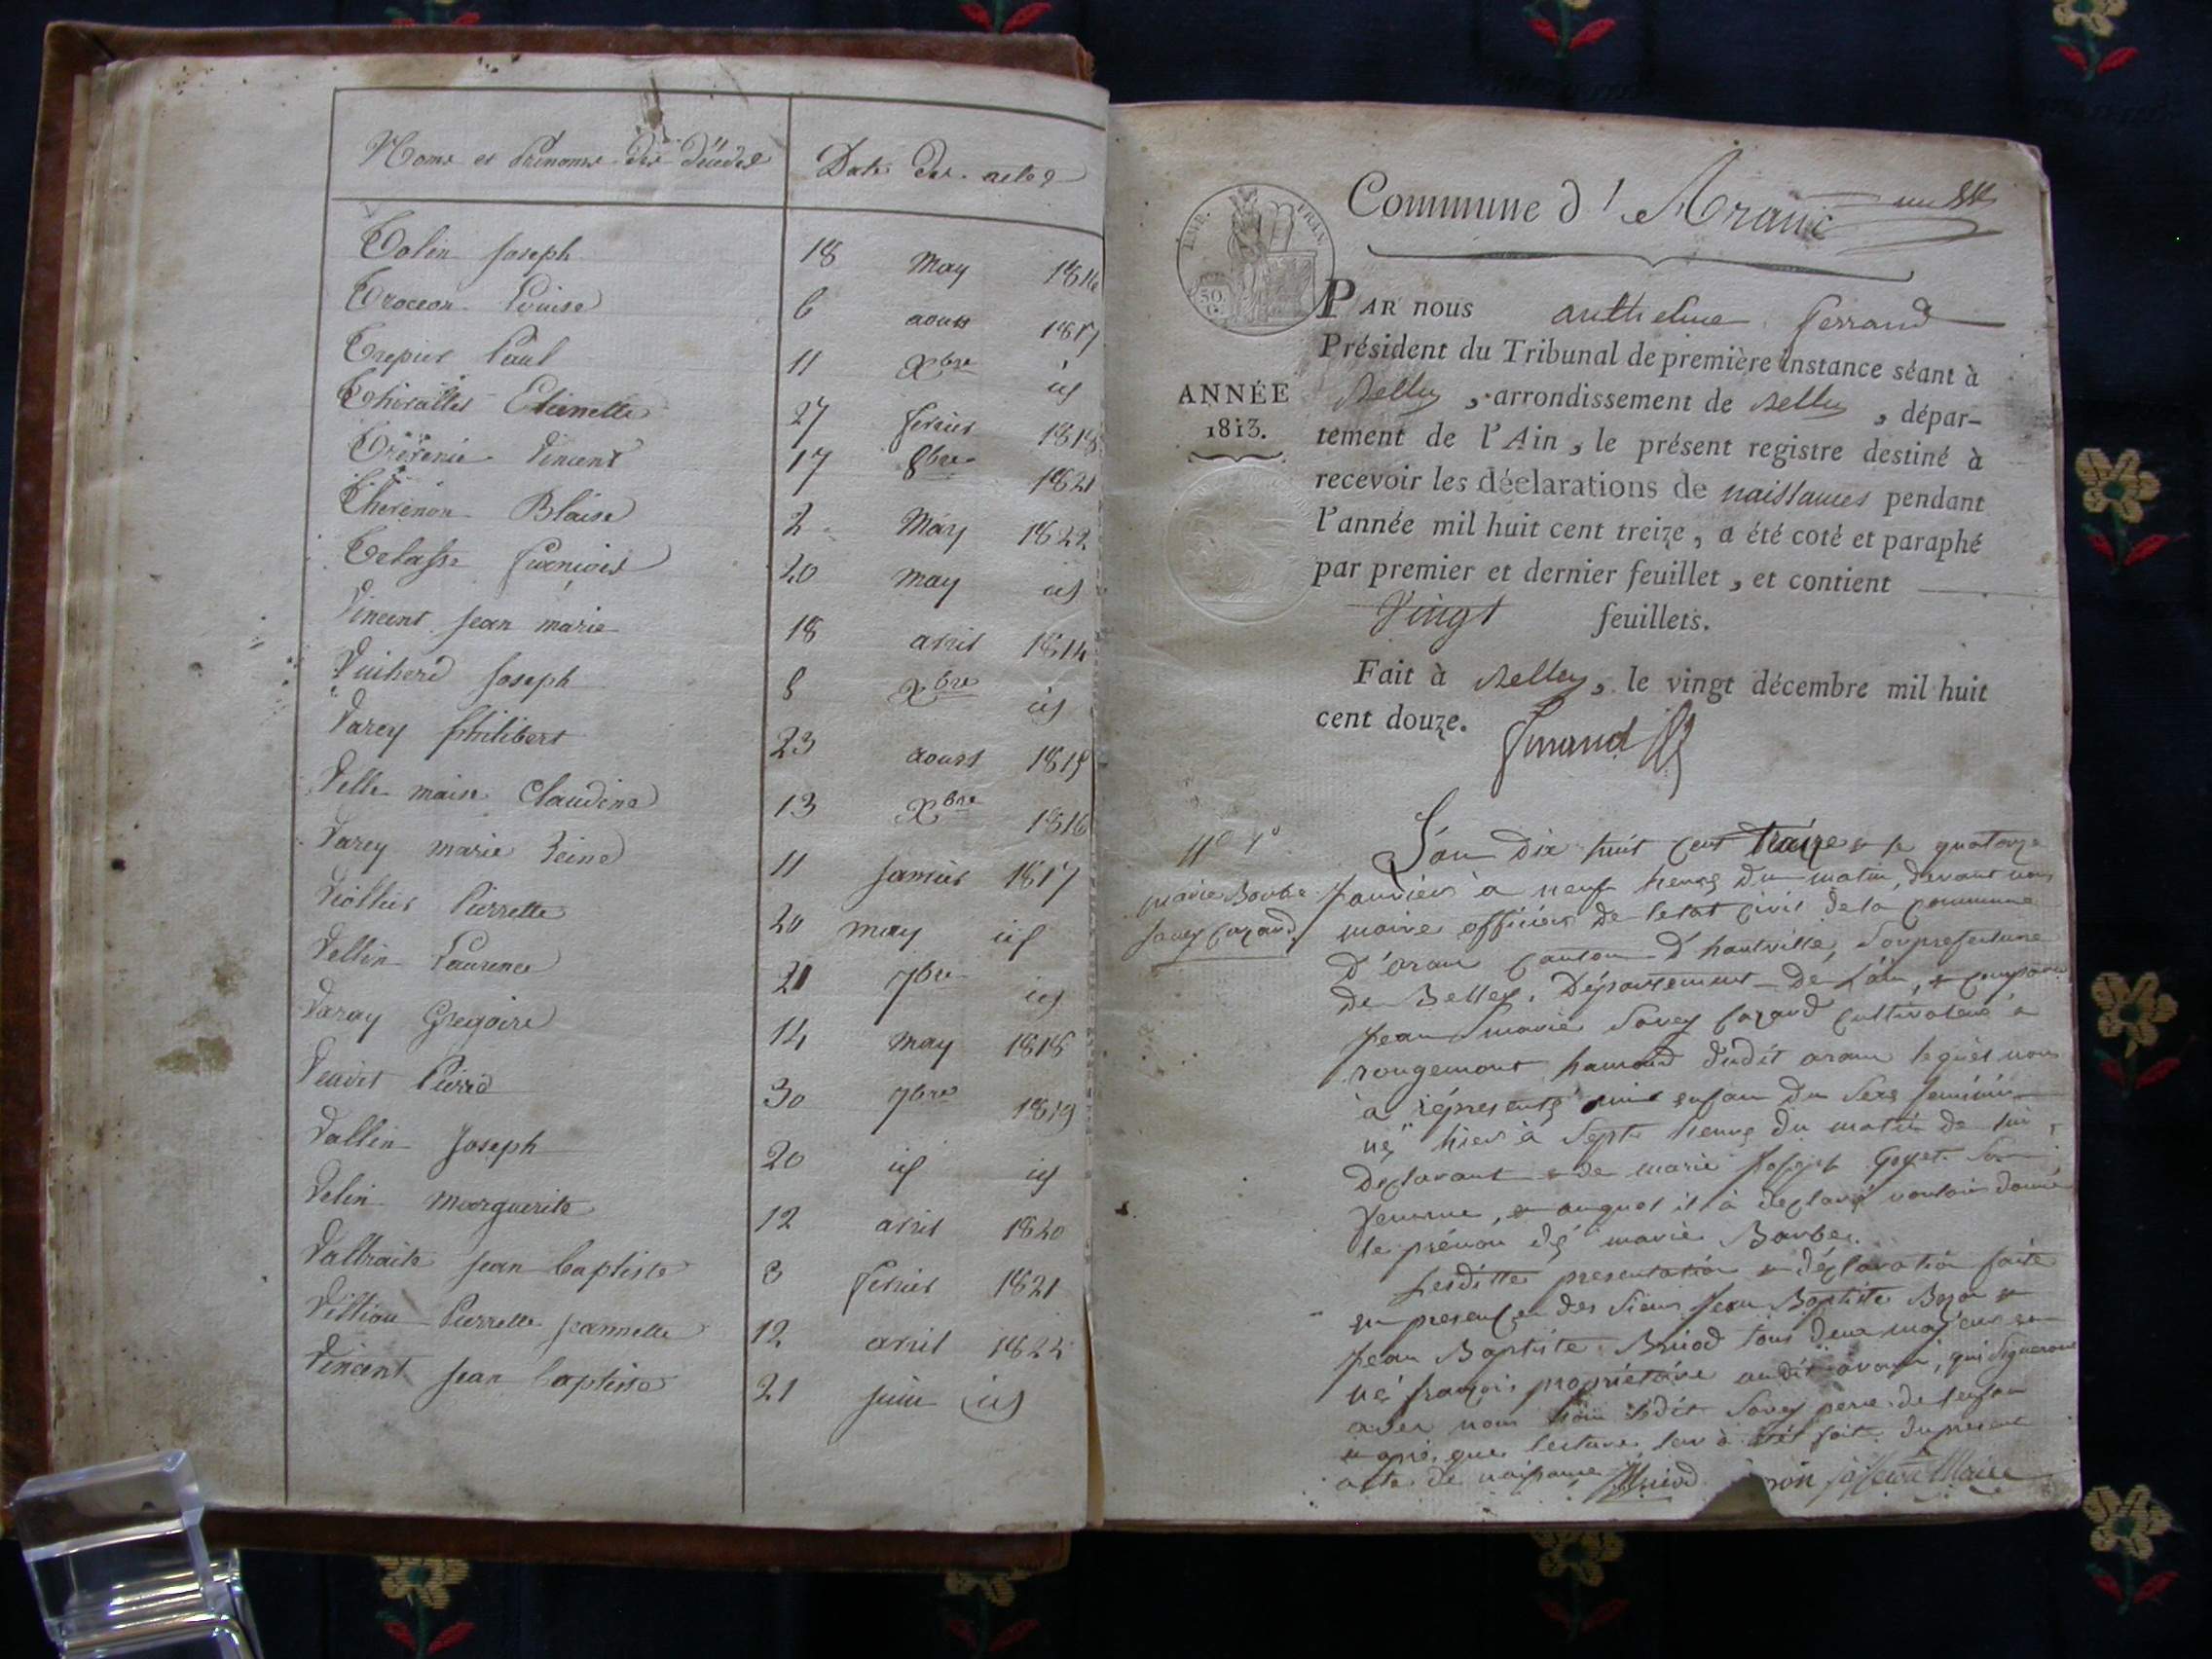 Noms et Prénoms des décédés
Date des actes
Tolin Joseph 18 May 1816
Louise 6 aoust 1817
Paul 11 Xbre id
Etiennette 27 fevrier 1818
Vincent 17 8bre 1821
Thevenon Blaise 2 May 1822
François 20 may id
Vincent jean marie 18 avril 1814
Joseph 8 Xbre id
Varey philibert 23 aoust 1815
Claudine 13 Xbre 1816
Varey marie Reine 11 janvier 1817
Pierrette 20 may id
Vellin Laurence 21 7bre id
Varay Gregoire 14 may 1818
Pierre 30 7bre 1819
Vallin Joseph 20 id id
Velin Marguerite 12 avril 1820
jean baptiste 3 fevrier 1821
Pierrette jeannette 12 avril 1822
Vincent jean baptiste 21 juin id
Commune d'Aranc
EMP. FRAN.
50
C.
PAR nous anthelme ferrand
Président du Tribunal de première instance séant à
ANNÉE
1813.
Belley, arrondissement de Belley, dépar-
tement de l'Ain, le présent registre destiné à
recevoir les déclarations de naissances pendant
l'année mil huit cent treize, a été coté et paraphé
par premier et dernier feuillet, et contient
Vingt feuillets.
Fait à Belley, le vingt décembre mil huit
cent douze.
ferrand
N° 1°
marie Barbe
Savey Cazard
L'an dix huit cent treize & le quatorze
janvier à neuf heures du matin, devant nous
maire officier de letat civil de la commune
d'aran canton d'hautville, souprefecture
de Belley, Département de Lain, & comparu
jean marie Savey Cazard cultivateur à
rougemont hamaud dudit aran lequel nous
a représenté une enfan du sexe feminin
né hier à sept heures du matin de lui
déclarant & de marie josephte Goyet son
femme, & auquel il à declaré vouloir donné
le prénom de marie Barbe.
Lesditte presentation & déclaration faite
en presence des sieurs jean Baptiste Bozon &
jean Baptiste Briod tous deux majeurs &
né françois propriétaire audit aran, qui signeront
avec nous non ledit Savey pere de lenfan
& aprés que lecture leur à été fait du present
acte de naissance Briod Maire